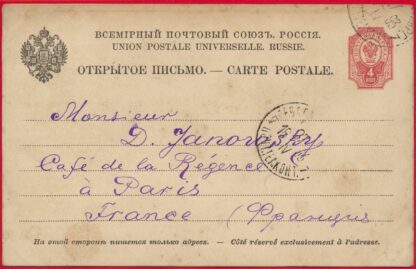 ВСЕМІРНЫЙ ПОЧТОВЫЙ СОЮЗЪ. РОССІЯ.
UNION POSTALE UNIVERSELLE. RUSSIE.
ОТКРЫТОЕ ПИСЬМО. — CARTE POSTALE.
4
Monsieur
D. Janowsky
Café de la Régence
à Paris
France (Франция)
На этой сторонѣ пишется только адресъ. — Côté réservé exclusivement à l'adresse.